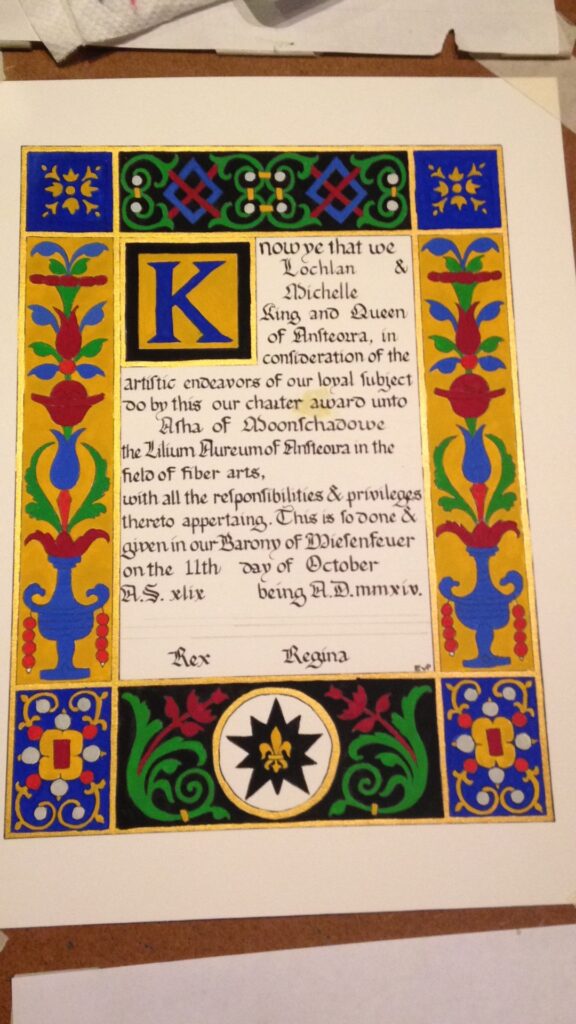 Know ye that we
Lochlan &
Michelle
King and Queen
of Ansteorra, in
consideration of the
artistic endeavors of our loyal subject
do by this our charter award unto
Asha of Moonschadowe
the Lilium Aureum of Ansteorra in the
field of fiber arts,
with all the responsibilities & privileges
thereto appertaing. This is so done &
given in our Barony of Wiesenfeuer
on the 11th day of October
A.S. xlix being A.D. mmxiv.
Rex Regina